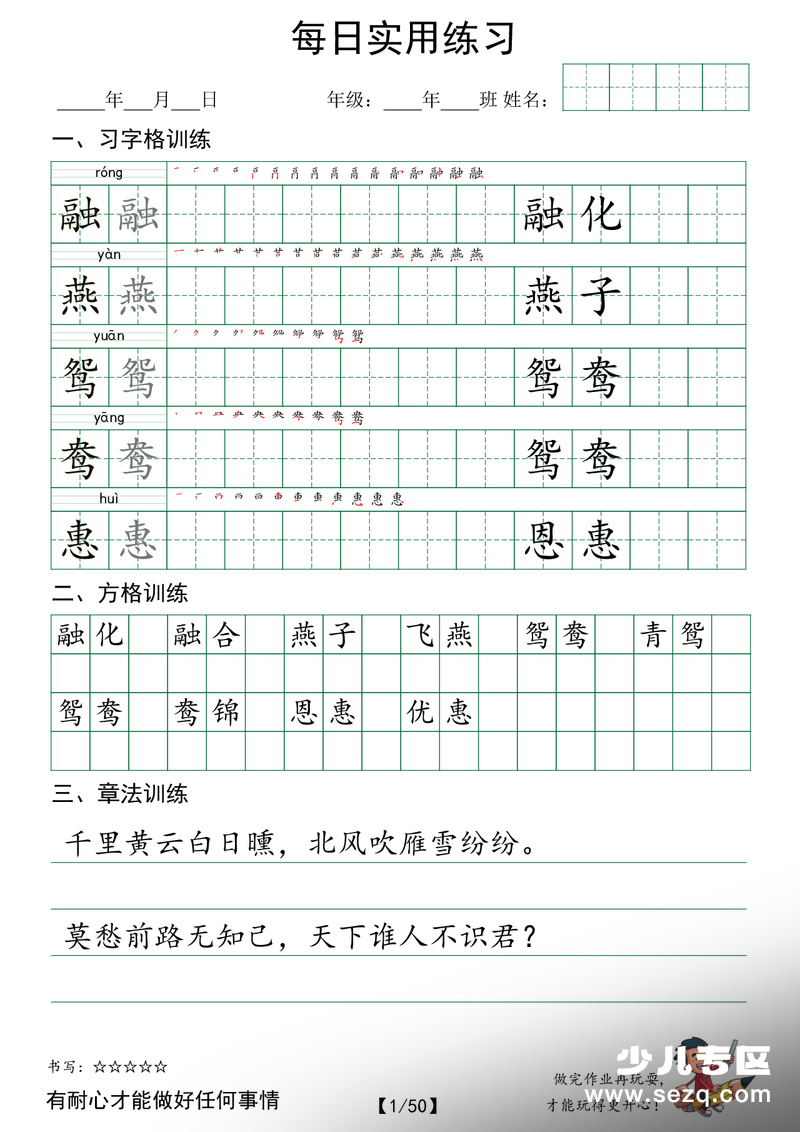 每日实用练习
_____年___月___日 年级：____年____班 姓名：
一、习字格训练
róng
融 融 融 化
yàn
燕 燕 燕 子
yuān
鸳 鸳 鸳 鸯
yāng
鸯 鸯 鸳 鸯
huì
惠 惠 恩 惠
二、方格训练
融化 融合 燕子 飞燕 鸳鸯 青鸳
鸳鸯 鸯锦 恩惠 优惠
三、章法训练
千里黄云白日曛，北风吹雁雪纷纷。
莫愁前路无知己，天下谁人不识君？
书写：☆☆☆☆☆
有耐心才能做好任何事情
【1/50】
做完作业再玩耍，
才能玩得更开心！
少儿专区
www.sezq.com